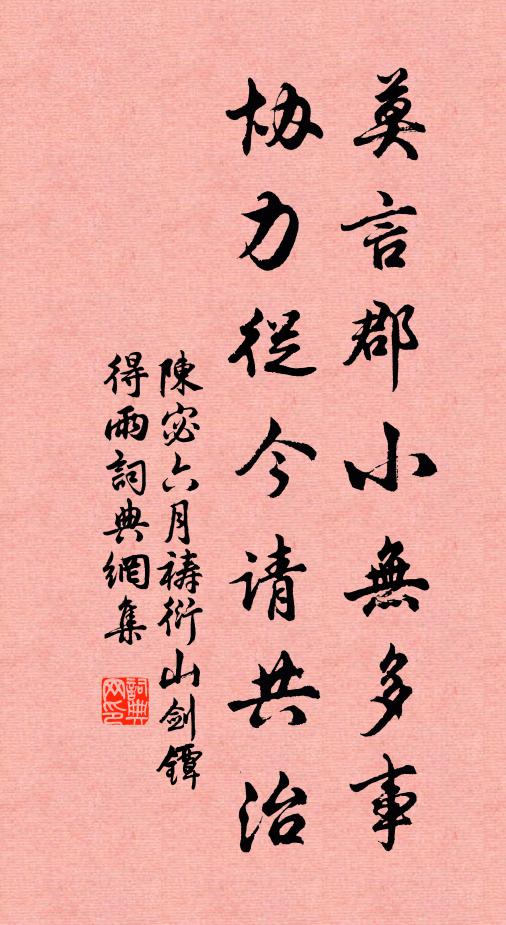 莫言郡小無多事
协力從今请共治
陳宓六月祷衍山剑鐔
得雨詞典網集
詞典网印